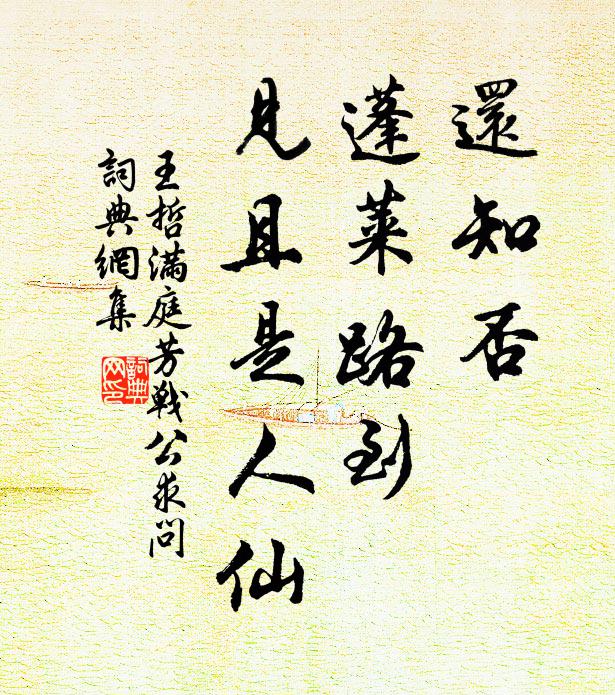 還知否
蓬萊路到
見且是人仙
王哲滿庭芳戰公求問
詞典網集
詞典網印